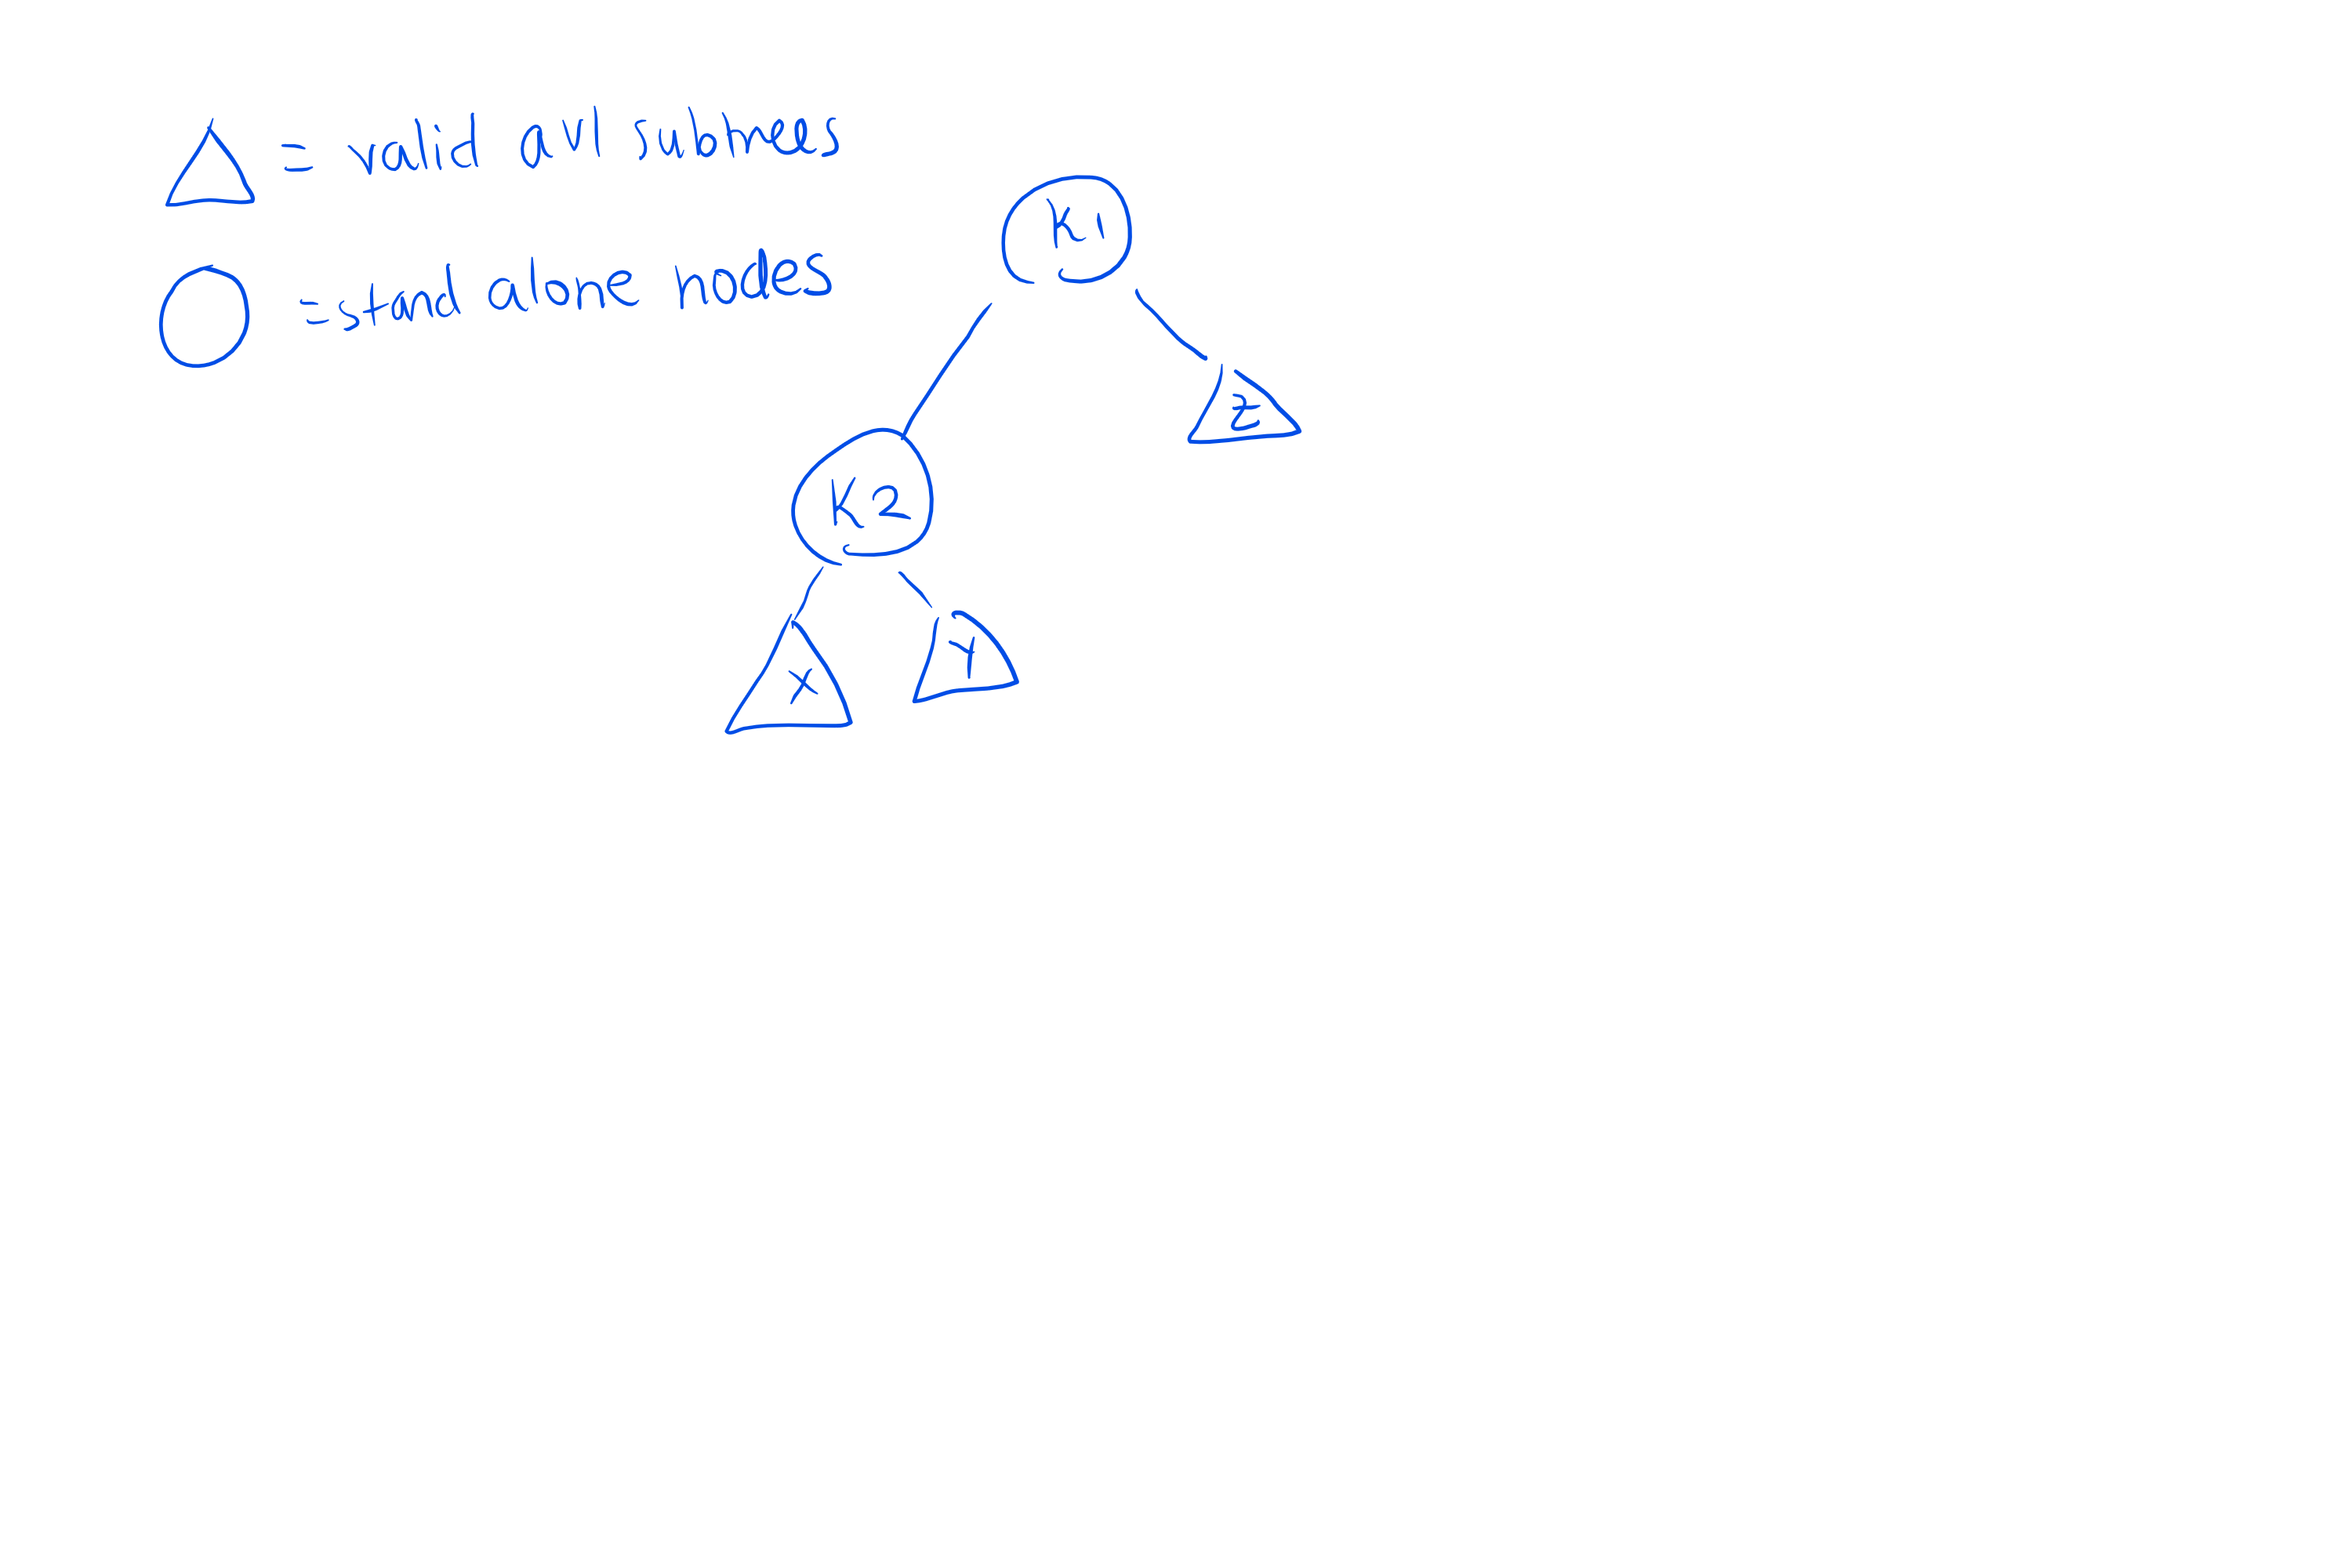 = valid avl subtrees
= stand alone nodes
K1
Z
K2
X
Y